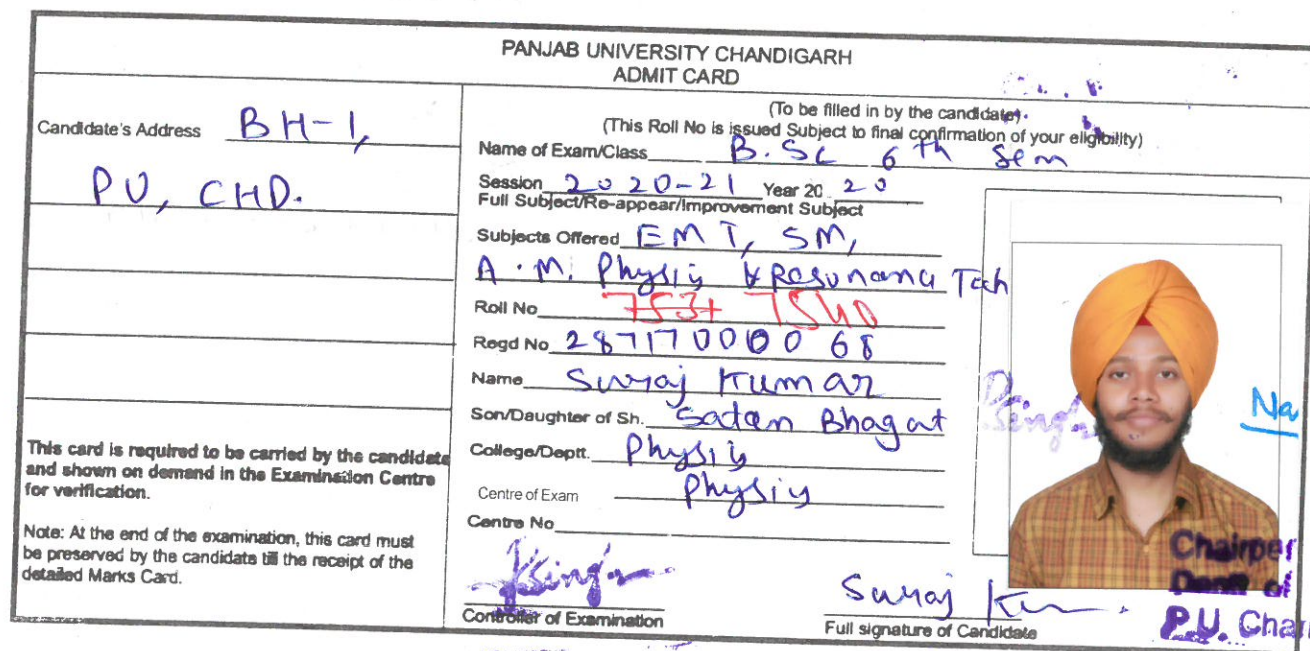 PANJAB UNIVERSITY CHANDIGARH
ADMIT CARD
Candidate's Address BH-1,
PU, CHD.
This card is required to be carried by the candidate
and shown on demand in the Examination Centre
for verification.
Note: At the end of the examination, this card must
be preserved by the candidate till the receipt of the
detailed Marks Card.
(To be filled in by the candidate)
(This Roll No is issued Subject to final confirmation of your eligibility)
Name of Exam/Class B.Sc 6th Sem
Session 2020-21 Year 20 20
Full Subject/Re-appear/Improvement Subject
Subjects Offered EMT, SM,
A.M. Physis & Resonance Tech
Roll No 7537 7540
Regd No 28717000068
Name Suraj Kumar
Son/Daughter of Sh. Satan Bhagat
College/Deptt. Physis
Centre of Exam Physis
Centre No
Singh
Controller of Examination
Suraj Ku
Full signature of Candidate
Singh
Na
Chairper
Deptt of
P.U. Chan